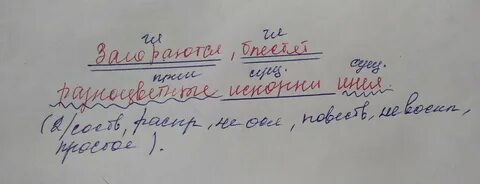 гл гл
Загораются, блестят
прил сущ. сущ.
разноцветные искорки инея.
(2/сост, распр, не осл, повеств, не воскл, простое).